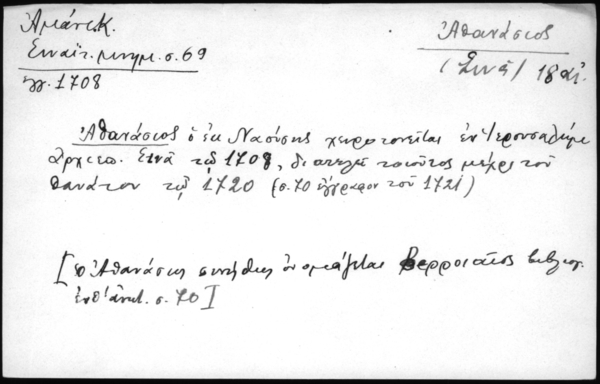 Ἀμάντ. Κ.
Σιναϊτ. μνημ. σ. 69
ἔγγ. 1708
Ἀθανάσιος
(Σινᾶ) 18 αἰ.
Ἀθανάσιος ὁ ἐκ Ναούσης χειροτονεῖται ἐν Ἱερουσαλήμ
ἀρχιεπ. Σινᾶ τῷ 1708, διατελεῖ τοιοῦτος μέχρι τοῦ
θανάτου τῷ 1720 (σ. 70 ἔγγραφον τοῦ 1721)
[ὁ Ἀθανάσιος συνήθως ὀνομάζεται Βερροιαῖος
ἔνθ' ἀνωτ. σ. 70]